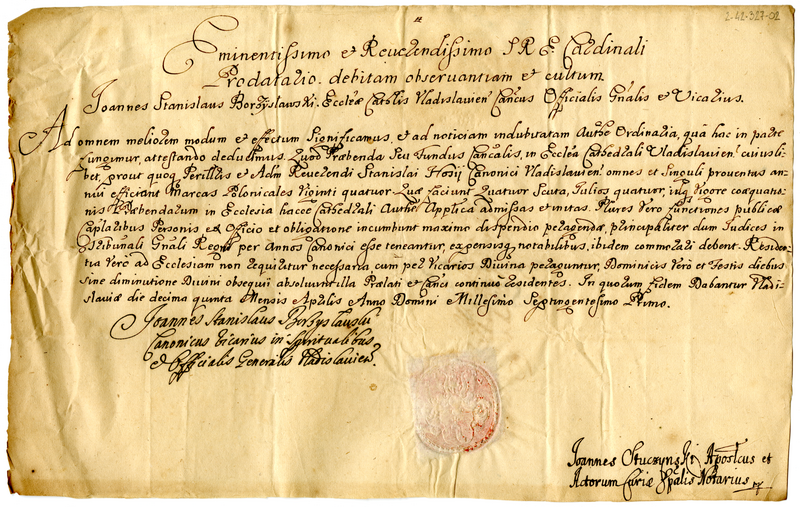 2-42-327-02
Eminentissimo et Reverendissimo S R E Cardinali
Prodatario. debitam observantiam et cultum
Joannes Stanislaus Borzysławski. Eccleæ Cathlis Vladislavien Cancus Officialis Gnalis et Vicarius.
Ad omnem meliorem modum et effectum Significamus, et ad noticiam indubitatam Authe Ordinaria, qua hac in parte
fungimur, attestando deducimus. Quod Præbenda Seu Fundus Cancalis, in Ecclea Cathedrali Vladislavien cuiusli-
bet, prout quoq Perillris et Adm Reverendi Stanislai Hosij Canonici Vladislavien omnes et Singuli proventus an-
nui efficiant Marcas Polonicales Viginti quatuor. Quæ faciunt Quatuor Scuta, Julios quatuor, Vigore coæquatio-
nis Præbendarum in Ecclesia hacce Cathedrali Authe Applica admissas et initas. Plures Vero functiones publicæ
Caplaribus Personis ex Officio et obligatione incumbunt maximo dispendio peragendæ, principaliter dum Judices in
Tribunali Gnali Regni per Annos Canonici esse teneantur, expensisq notabilitus, ibidem commorari debent. Residen-
tia Vero ad Ecclesiam non requiratur necessaria cum per Vicarios Divina peraguntur, Dominicis Vero et Festis diebus
sine diminutione Divini obsequi absolvunt illa Prælati et Canci continuo residentes. In quorum fidem Dabantur Vladi-
slaviæ die decima quinta Mensis Aprilis Anno Domini Millesimo Septingentesimo Primo.
Joannes Stanislaus Borzysławski
Canonicus Vicarius in Spiritualibus
et Officialis Generalis Vladislavien
Joannes Stuczynski Apostcus et
Actorum Curiæ Epalis Notarius